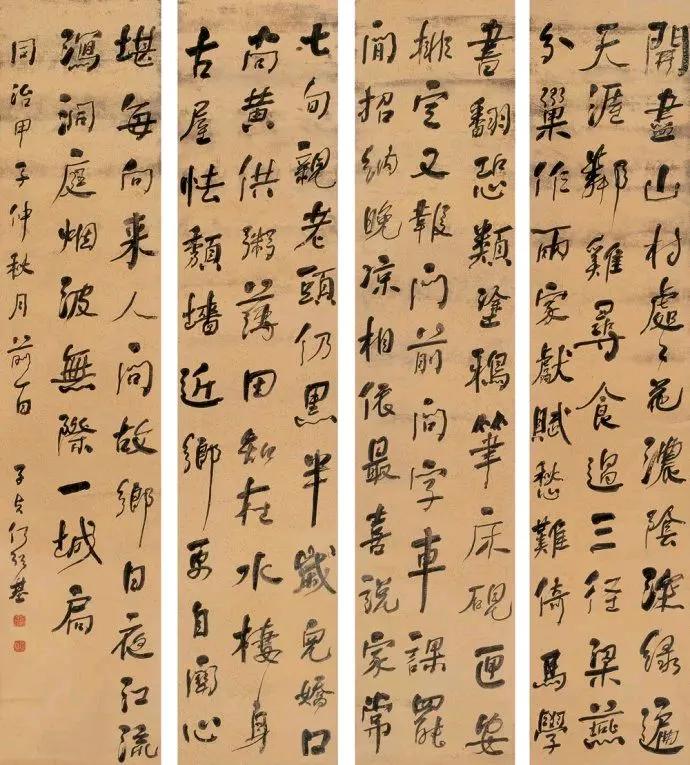 開盡山村處々花濃陰深綠遍
天涯鄰雞尋食過三徑梁燕
分巢作兩家獻賦愁難倚馬學
書翻恐類塗鴉筆床硯匣安
排定又報門前問字車課罷
閒招納晚涼相依最喜說家常
七旬親老頭仍黑半歲兒嬌口
尚黃供粥薄田知在水棲身
古屋怯頹墻近鄉更自關心
堪每向來人問故鄉日夜江流
瀉洞庭烟波無際一城扃
同治甲子仲秋月前一日 子貞何紹基